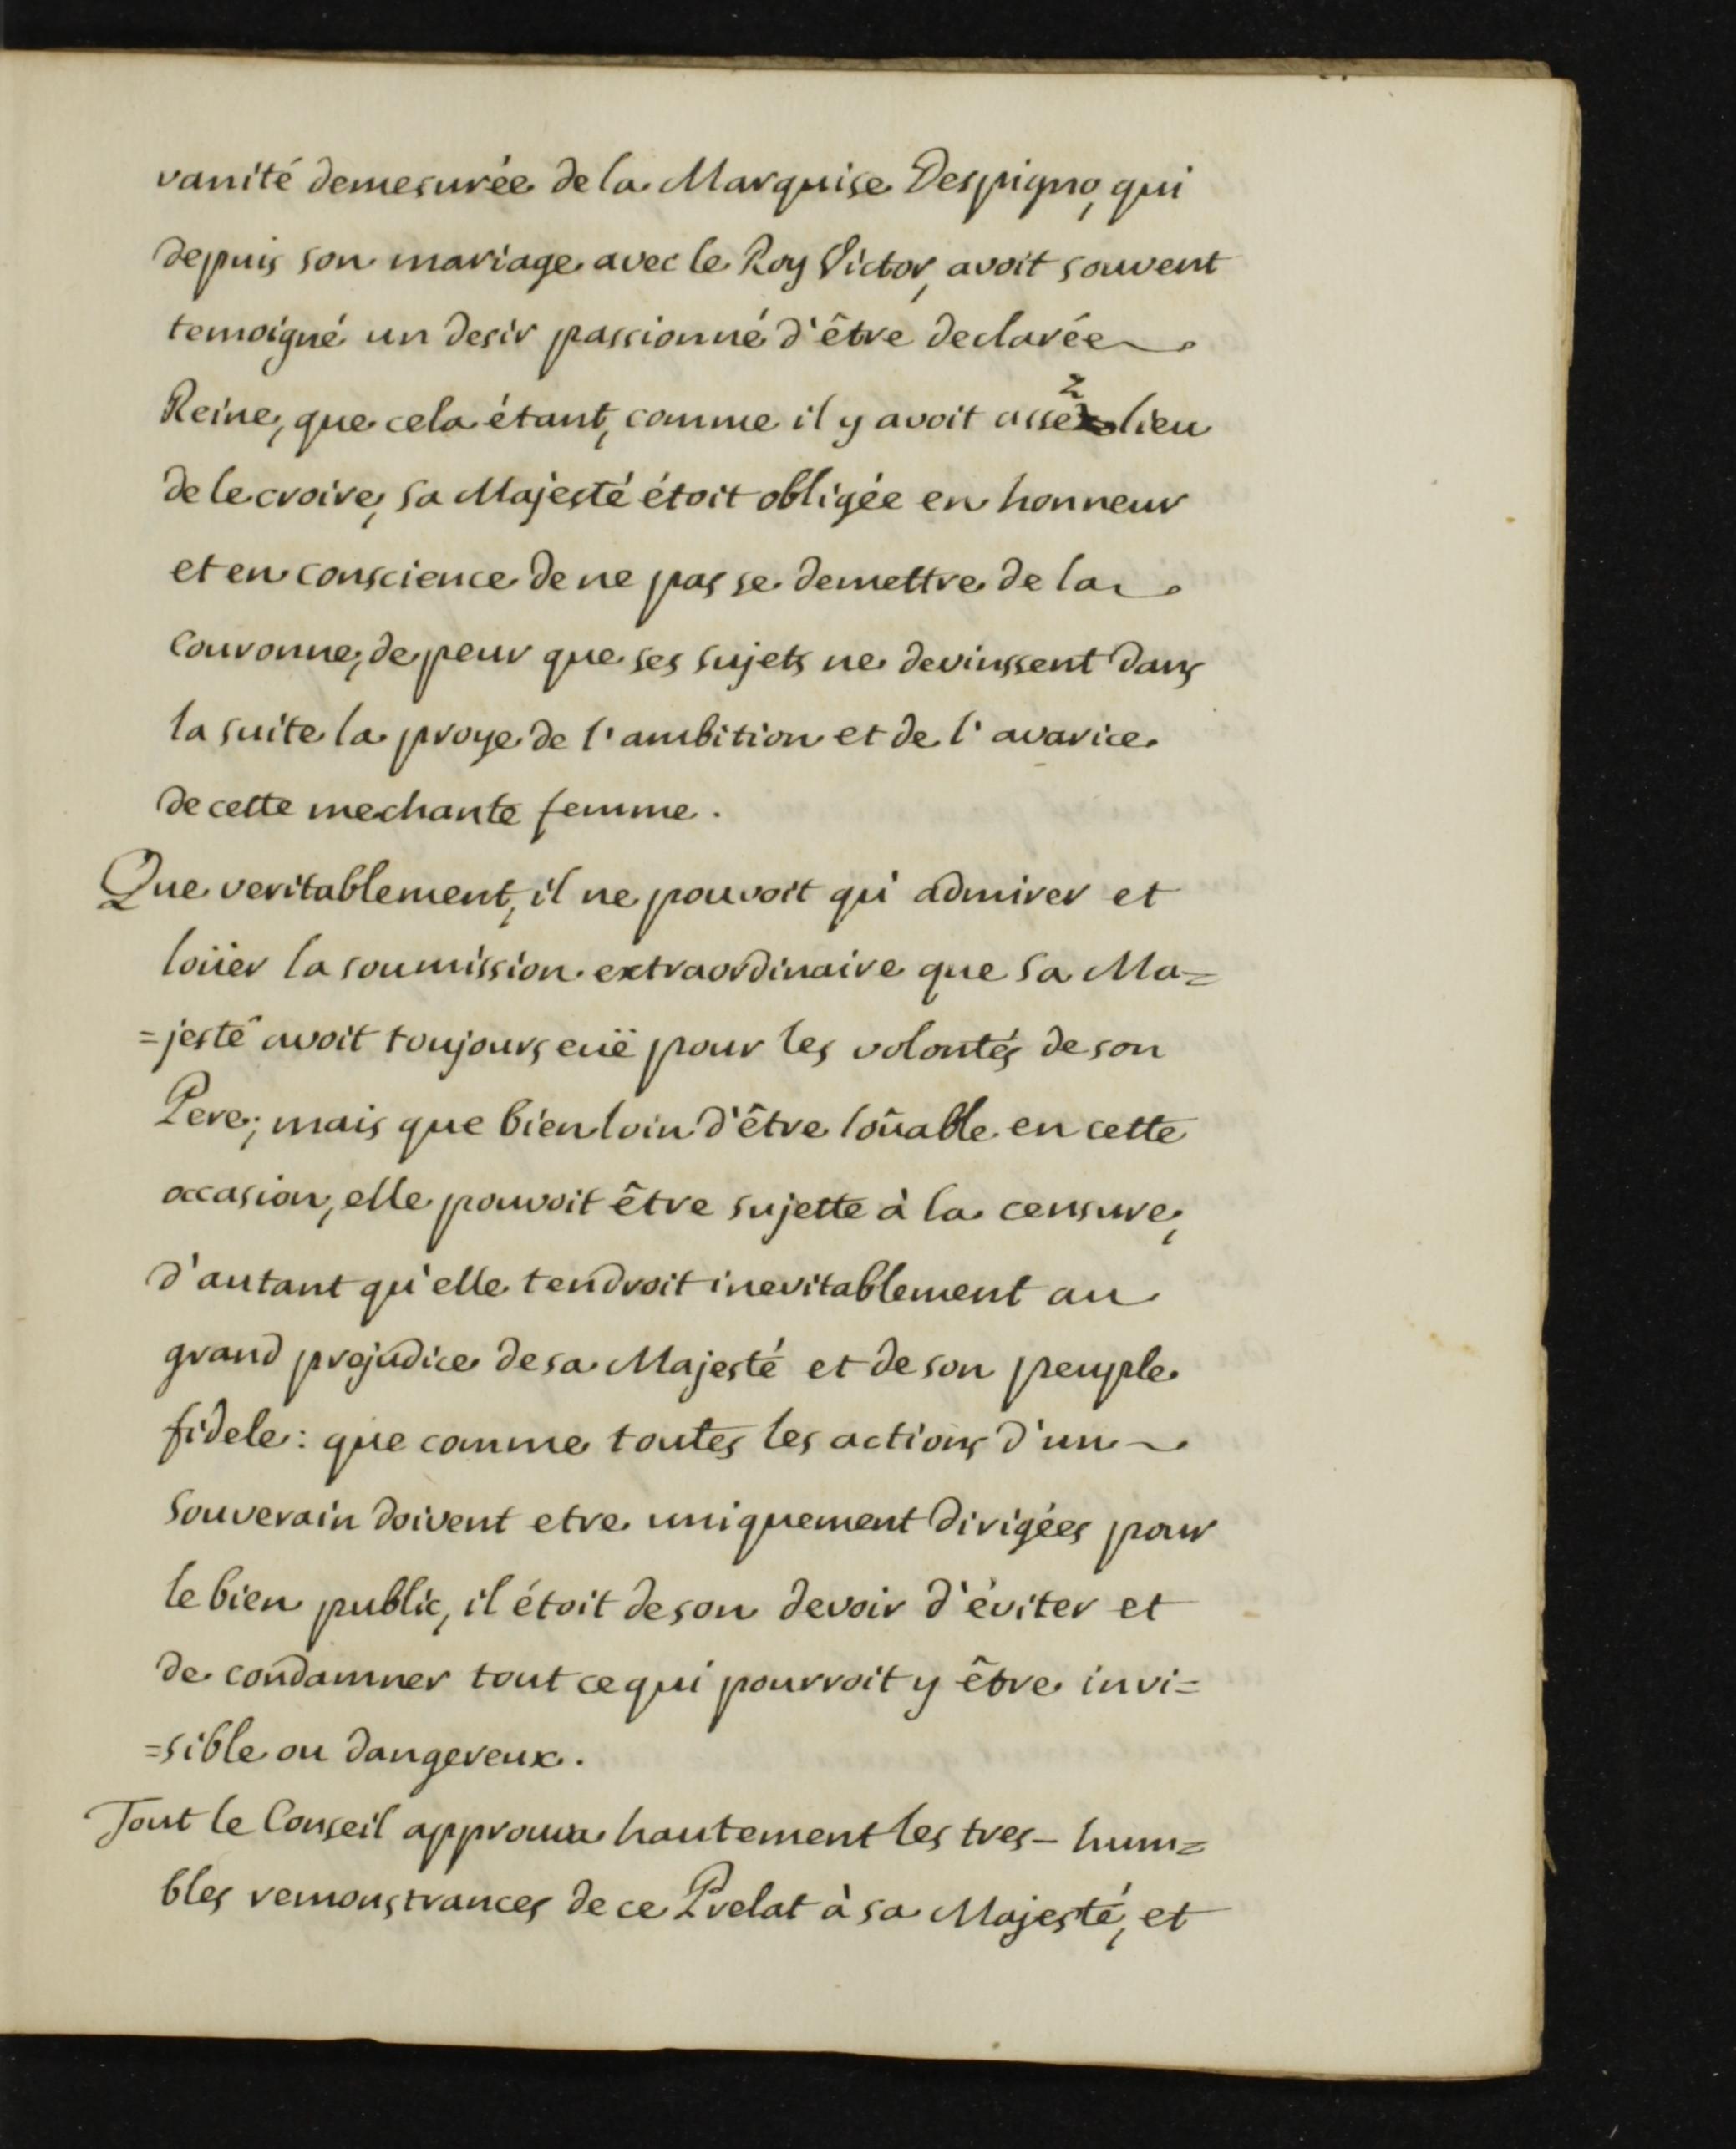 vanité demesurée de la Marquise Despigno, qui
depuis son mariage avec le Roy Victor, avoit souvent
temoigné un desir passionné d'être declarée
Reine, que cela étant, comme il y avoit assez lieu
de le croire, sa Majesté étoit obligée en honneur
et en conscience de ne pas se demettre de la
Couronne, de peur que ses sujets ne devinssent dans
la suite la proye de l'ambition et de l'avarice
de cette mechante femme.
Que veritablement, il ne pouvoit qu'admirer et
loüer la soumission extraordinaire que sa Ma=
=jesté avoit toujours eüe pour les volontés de son
Pere; mais que bien loin d'être loüable en cette
occasion, elle pouvoit être sujette à la censure,
d'autant qu'elle tendroit inevitablement au
grand prejudice de sa Majesté et de son peuple
fidele: que comme toutes les actions d'un
Souverain doivent etre uniquement dirigées pour
le bien public, il étoit de son devoir d'éviter et
de condamner tout ce qui pourroit y être invi=
=sible ou dangereux.
Tout le Conseil approuva hautement les tres-hum=
bles remonstrances de ce Prelat à sa Majesté, et